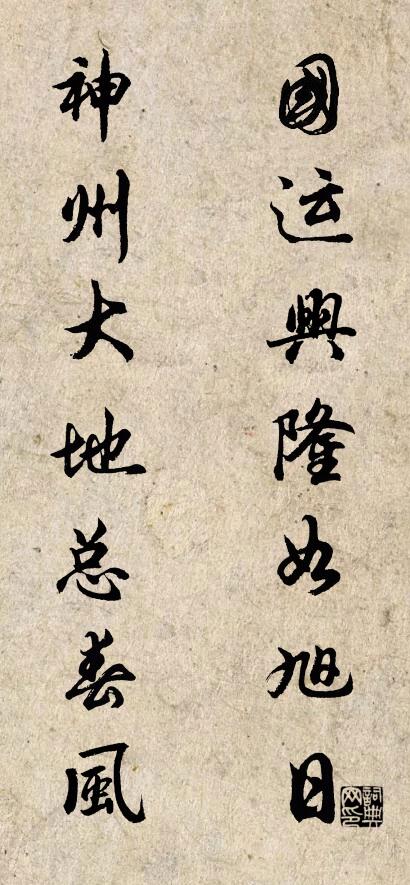 國运興隆如旭日
神州大地总春風
詞典网印